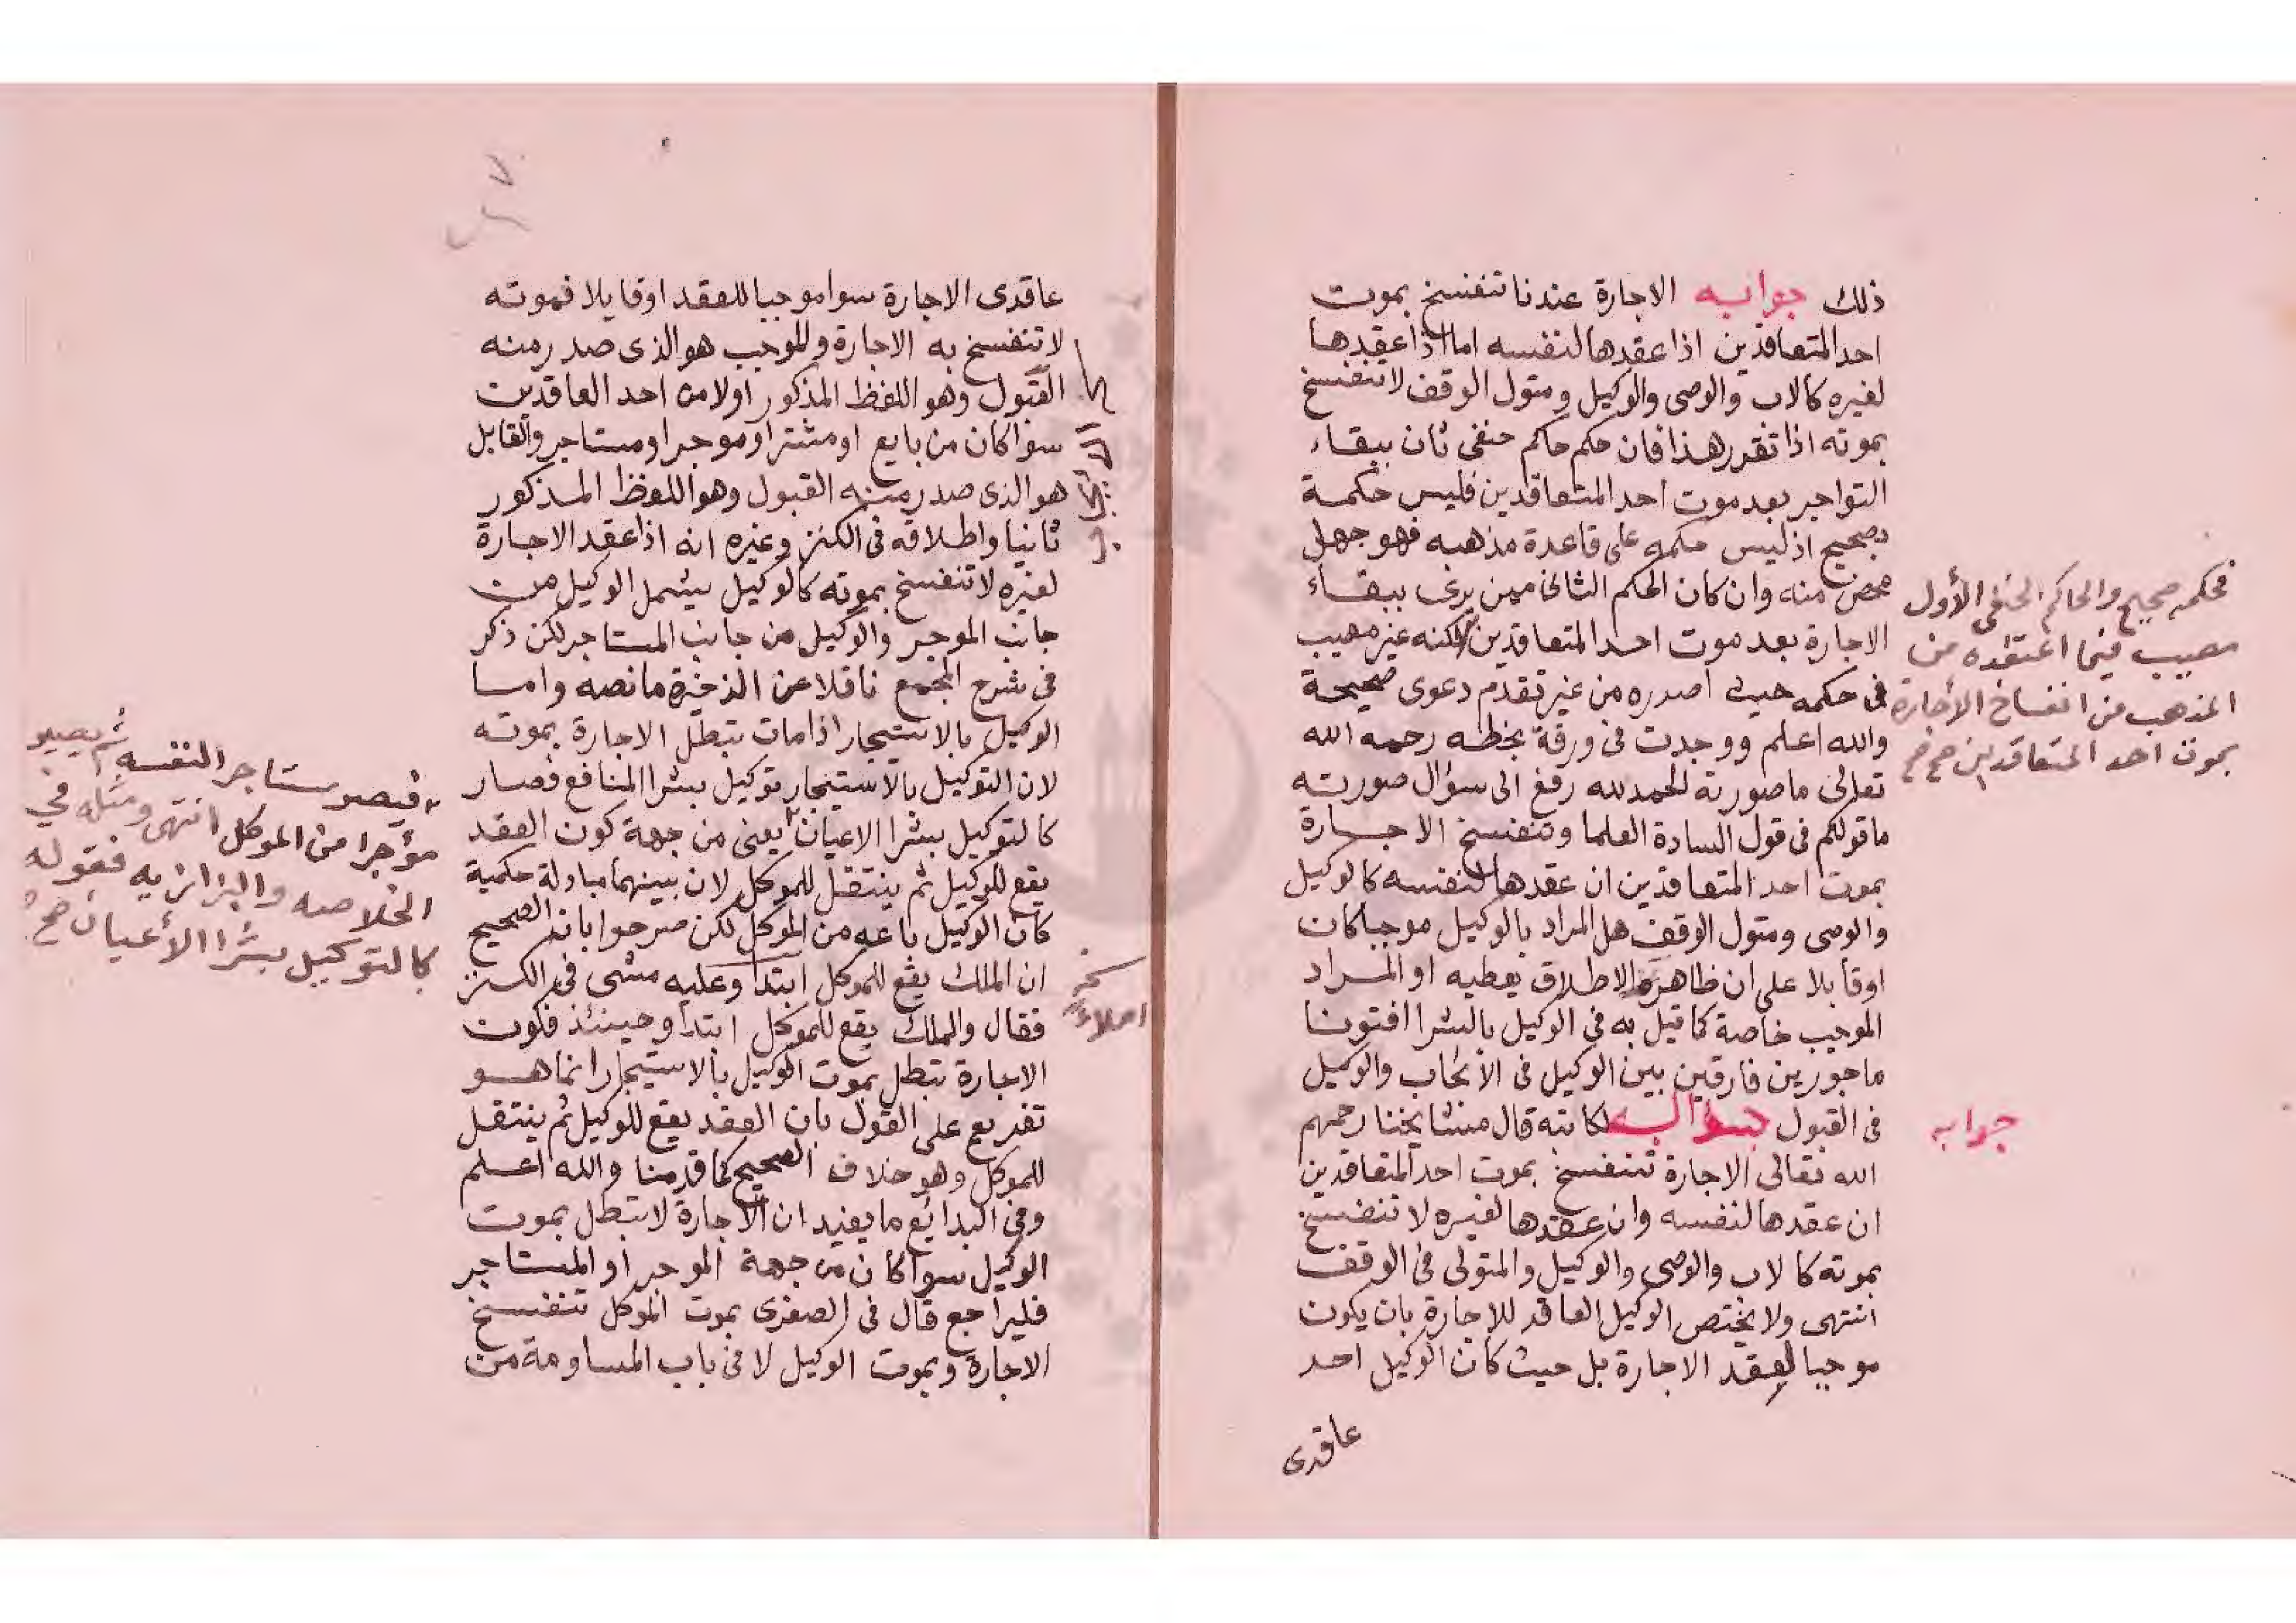 ذلك جوابه الاجارة عندنا تنفسخ بموت
احد المتعاقدين اذا عقدها لنفسه اما اذا عقدها
لغيره كالاب والوصى والوكيل ومتول الوقف لا تنفسخ
بموته اذا تقرر هذا فان حكم حاكم حنفى ثان ببقاء
التواجر بعد موت احد المتعاقدين فليس حكمة
بصحيح اذ ليس حكمه على قاعدة مذهبه فهو جهل
محض منه وان كان الحكم الثانى ممن يرى ببقاء
الاجارة بعد موت احد المتعاقدين لكنه غير مصيب
فى حكمه حيث اصدره من غير تقدم دعوى صحيحة
والله اعلم ووجدت فى ورقة بخطه رحمه الله
تعالى ما صورته الحمد لله رفع الى سؤال صورته
ما قولكم فى قول السادة العلما وتنفسخ الاجارة
بموت احد المتعاقدين ان عقدها لنفسه كالوكيل
والوصى ومتول الوقف هل المراد بالوكيل موجبا كان
اوقابلا على ان ظاهره الاطلاق يعطيه او المراد
الموجب خاصة كما قيل به فى الوكيل بالشرا افتونا
ماجورين فارقين بين الوكيل فى الايجاب والوكيل
فى القبول لكاتبه قال مشايخنا رحمهم
الله تعالى الاجارة تنفسخ بموت احد المتعاقدين
ان عقدها لنفسه وان عقدها لغيره لا تنفسخ
بموته كالاب والوصى والوكيل والمتولى فى الوقف
انتهى ولا يختص الوكيل العاقد للاجارة بان يكون
موجبا لعقد الاجارة بل حيث كان الوكيل احد
عاقدى
فحكمه صحيح والحاكم الحنفى الأول
مصيب فيما اعتقده من
المذهب من انفساخ الأجارة
بموت احد المتعاقدين صح
جوابه
عاقدى الاجارة سوا موجبا للعقد اوقابلا فموته
لا تنفسخ به الاجارة والموجب هو الذى صدر منه
القبول وهو اللفظ المذكور اولا من احد العاقدين
سوا كان من بايع او مشتر او موجر او مستاجر والقابل
هو الذى صدر منه القبول وهو اللفظ المذكور
ثانيا واطلاقه فى الكنز وغيره انه اذا عقد الاجارة
لغيره لا تنفسخ بموته كالوكيل يشمل الوكيل من
جانب الموجر والوكيل من جانب المستاجر لكن ذكر
فى شرح المجمع ناقلا عن الذخيرة ما نصه واما
الوكيل بالاستيجار اذا مات تبطل الاجارة بموته
لان التوكيل بالاستيجار توكيل بشرا المنافع فصار
كالتوكيل بشرا الاعيان يعنى من جهة كون العقد
يقع للوكيل ثم ينتقل للموكل لان بينهما مبادلة حكمية
كان الوكيل باعه من الموكل لكن صرحوا بان الصحيح
ان الملك يقع للموكل ابتدا وعليه مشى فى الكنز
فقال والملك يقع للموكل ابتدا وحينئذ فكون
الاجارة تبطل بموت الوكيل بالاستيجار انما هو
تفريع على القول بان العقد يقع للوكيل ثم ينتقل
للموكل وهو خلاف الصحيح كما قدمنا والله اعلم
وفى البدايع ما يفيد ان الاجارة لا تبطل بموت
الوكيل سوا كان من جهة الموجر او المستاجر
فليراجع قال فى الصغرى بموت الموكل تنفسخ
الاجارة وبموت الوكيل لا فى باب المساومة من
فيصير مستاجر النفسه ثم يصير
مؤجرا من الموكل انتهى ومثله في
الخلاصه والبزازيه فقوله
كالتوكيل بشرا الأعيان صح